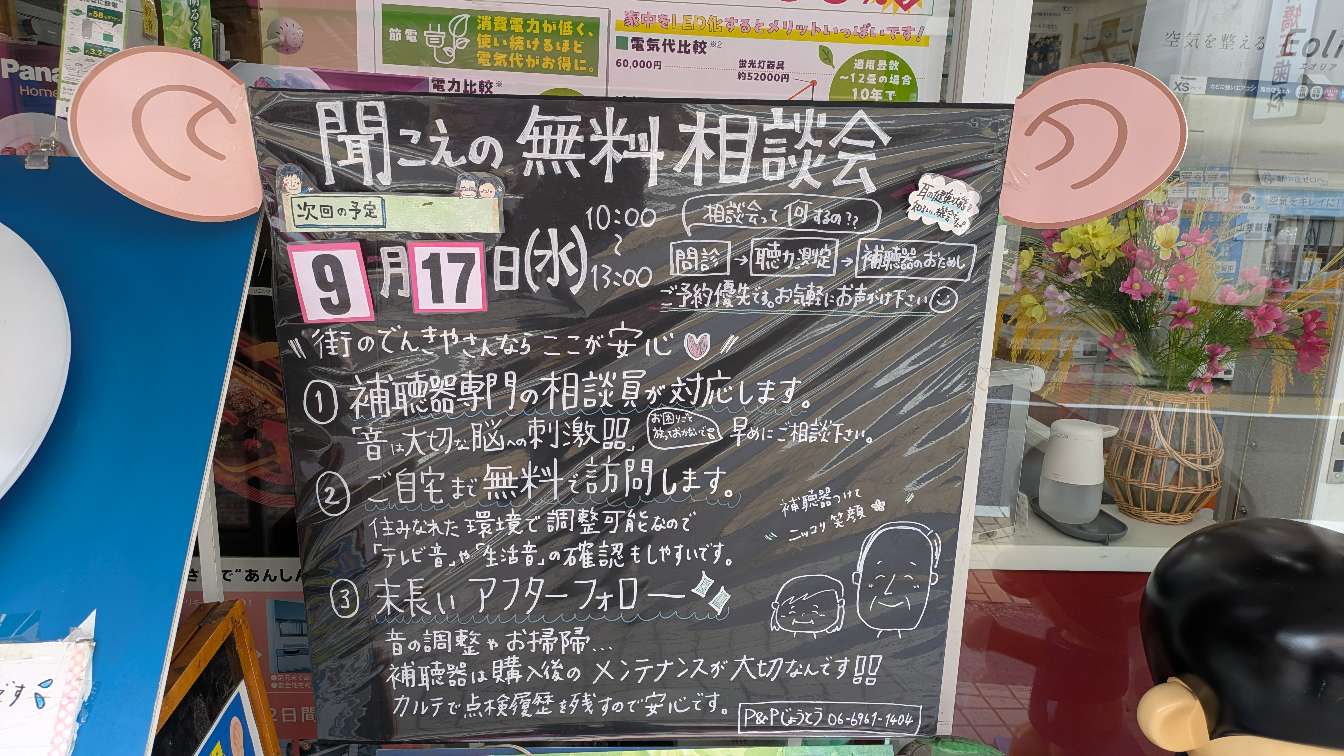 節電
消費電力が低く、
使い続けるほど
電気代がお得に。
電力比較※
家中をLED化するとメリットいっぱいです!
電気代比較※2
60,000円
蛍光灯器具
約52000円
適用畳数
〜12畳の場合
10年で
Pana
Home
空気を整える
Eoli
エオリア
XS
聞こえの無料相談会
次回の予定
9月17日(水)
10:00
〜
13:00
相談会って何するの??
問診→聴力測定→補聴器のおためし
ご予約優先です。お気軽にお声がけ下さい
"街のでんきやさんならここが安心"
① 補聴器専門の相談員が対応します。
「音は大切な脳への刺激」
お困りごとを
放っておかないで
早めにご相談下さい。
② ご自宅まで無料で訪問します。
住みなれた環境で調整可能なので
「テレビ音」や「生活音」の確認もしやすいです。
補聴器つけて
ニッコリ笑顔
③ 末長いアフターフォロー
音の調整やお掃除...
補聴器は購入後のメンテナンスが大切なんです!!
カルテで点検履歴を残すので安心です。
P&Pじょうとう 06-6961-1404
で"あんしん
2日間
です